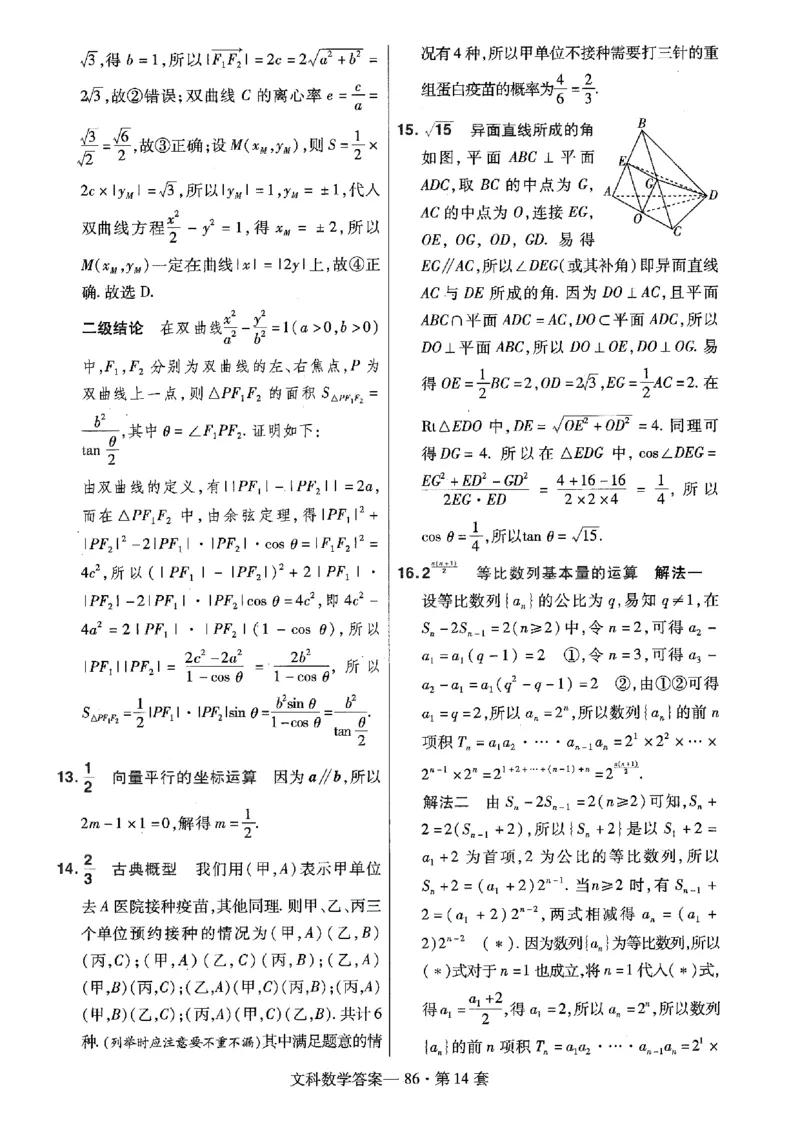 √3,得 b=1,所以|F₁F₂|=2c=2√(a²+b²)=
2√3,故②错误;双曲线 C 的离心率 e=c/a=
√3/√2=√6/2,故③正确;设 M(x_M,y_M),则 S=1/2×
2c×|y_M|=√3,所以|y_M|=1,y_M=±1,代入
双曲线方程x²/2-y²=1,得 x_M=±2,所以
M(x_M,y_M)一定在曲线|x|=|2y|上,故④正
确.故选 D.
二级结论 在双曲线x²/a²-y²/b²=1(a>0,b>0)
中,F₁,F₂ 分别为双曲线的左、右焦点,P 为
双曲线上一点,则△PF₁F₂ 的面积 S△PF₁F₂=
b²/tan(θ/2),其中 θ=∠F₁PF₂.证明如下:
由双曲线的定义,有||PF₁|-|PF₂||=2a,
而在△PF₁F₂ 中,由余弦定理,得|PF₁|²+
|PF₂|²-2|PF₁|·|PF₂|·cos θ=|F₁F₂|²=
4c²,所以(|PF₁|-|PF₂|)²+2|PF₁|·
|PF₂|-2|PF₁|·|PF₂|cos θ=4c²,即 4c²-
4a²=2|PF₁|·|PF₂|(1-cos θ),所以
|PF₁||PF₂|=(2c²-2a²)/(1-cos θ)=2b²/(1-cos θ),所以
S△PF₁F₂=1/2|PF₁|·|PF₂|sin θ=b²sin θ/(1-cos θ)=b²/tan(θ/2).
13. 1/2 向量平行的坐标运算 因为 a∥b,所以
2m-1×1=0,解得 m=1/2.
14. 2/3 古典概型 我们用(甲,A)表示甲单位
去 A 医院接种疫苗,其他同理.则甲、乙、丙三
个单位预约接种的情况为(甲,A)(乙,B)
(丙,C);(甲,A)(乙,C)(丙,B);(乙,A)
(甲,B)(丙,C);(乙,A)(甲,C)(丙,B);(丙,A)
(甲,B)(乙,C);(丙,A)(甲,C)(乙,B).共计6
种.(列举时应注意要不重不漏)其中满足题意的情
况有4种,所以甲单位不接种需要打三针的重
组蛋白疫苗的概率为4/6=2/3.
15. √15 异面直线所成的角
如图,平面 ABC⊥平面
ADC,取 BC 的中点为 G,
AC 的中点为 O,连接 EG,
OE,OG,OD,GD.易得
B
E
G
A
D
O
C
EG∥AC,所以∠DEG(或其补角)即异面直线
AC 与 DE 所成的角.因为 DO⊥AC,且平面
ABC∩平面 ADC=AC,DO⊂平面 ADC,所以
DO⊥平面 ABC,所以 DO⊥OE,DO⊥OG.易
得 OE=1/2BC=2,OD=2√3,EG=1/2AC=2.在
Rt△EDO 中,DE=√(OE²+OD²)=4.同理可
得 DG=4.所以在△EDG 中,cos∠DEG=
(EG²+ED²-GD²)/(2EG·ED)=(4+16-16)/(2×2×4)=1/4,所以
cos θ=1/4,所以tan θ=√15.
16. 2^(n(n+1)/2) 等比数列基本量的运算 解法一
设等比数列{aₙ}的公比为 q,易知 q≠1,在
Sₙ-2Sₙ₋₁=2(n≥2)中,令 n=2,可得 a₂-
a₁=a₁(q-1)=2 ①,令 n=3,可得 a₃-
a₂-a₁=a₁(q²-q-1)=2 ②,由①②可得
a₁=q=2,所以 aₙ=2ⁿ,所以数列{aₙ}的前 n
项积 Tₙ=a₁a₂·…·aₙ₋₁aₙ=2¹×2²×…×
2ⁿ⁻¹×2ⁿ=2^(1+2+…+(n-1)+n)=2^(n(n+1)/2).
解法二 由 Sₙ-2Sₙ₋₁=2(n≥2)可知,Sₙ+
2=2(Sₙ₋₁+2),所以{Sₙ+2}是以 S₁+2=
a₁+2 为首项,2 为公比的等比数列,所以
Sₙ+2=(a₁+2)2ⁿ⁻¹.当n≥2 时,有 Sₙ₋₁+
2=(a₁+2)2ⁿ⁻²,两式相减得 aₙ=(a₁+
2)2ⁿ⁻² (*).因为数列{aₙ}为等比数列,所以
(*)式对于 n=1 也成立,将 n=1 代入(*)式,
得a₁=(a₁+2)/2,得 a₁=2,所以 aₙ=2ⁿ,所以数列
{aₙ}的前 n 项积 Tₙ=a₁a₂·…·aₙ₋₁aₙ=2¹×
文科数学答案—86·第14套